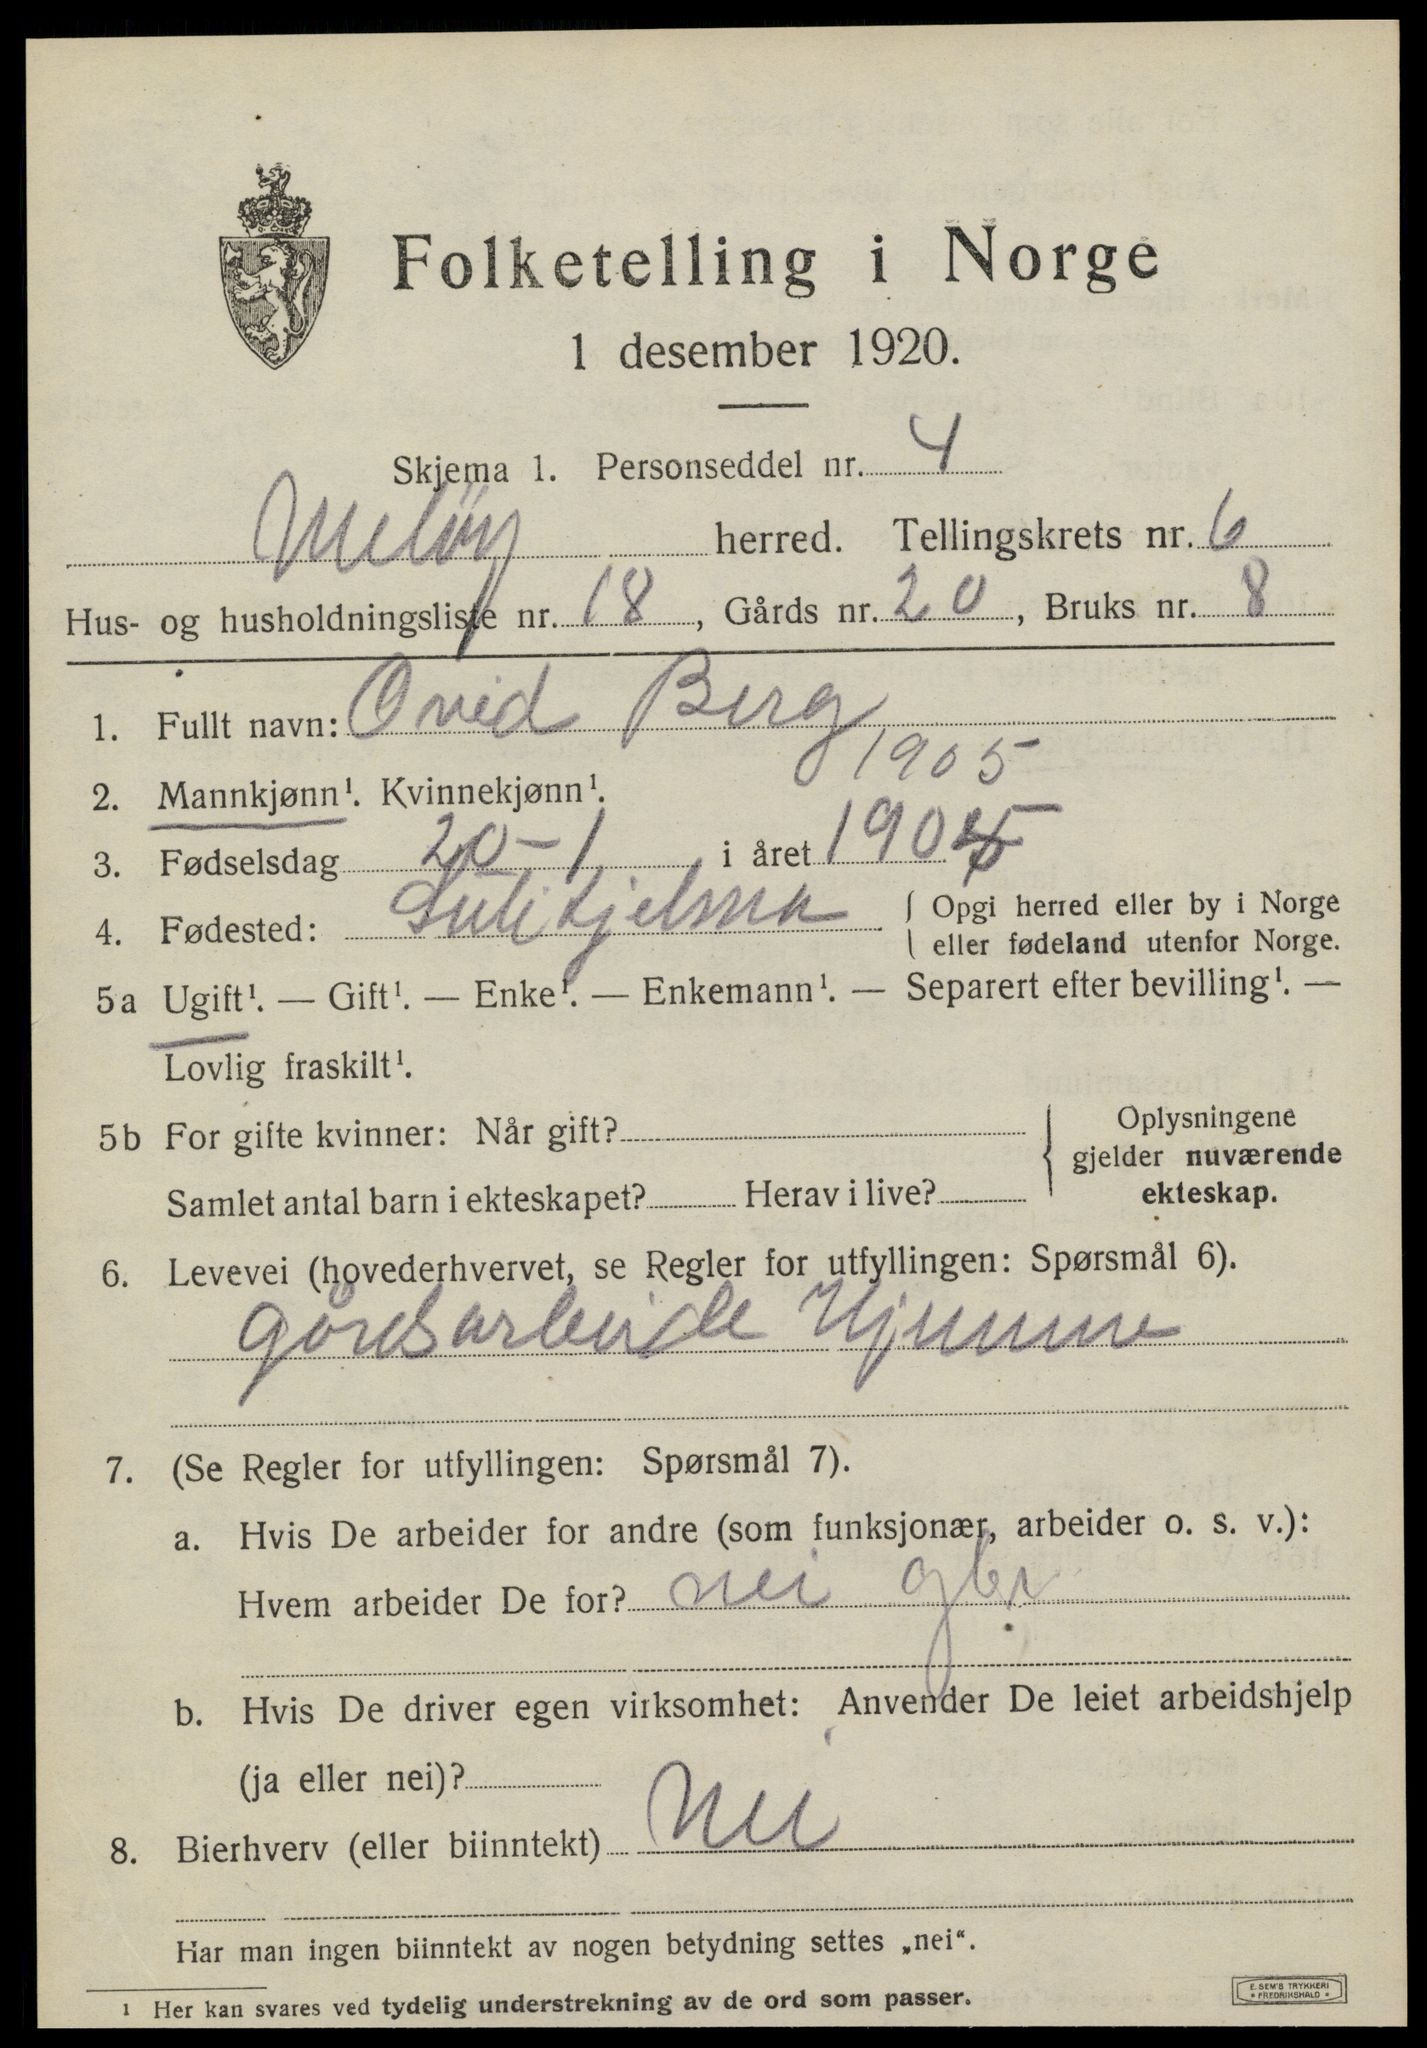 Folketelling i Norge
1 desember 1920.
Skjema 1. Personseddel nr. 4
Meløy herred. Tellingskrets nr. 6
Hus- og husholdningsliste nr. 18, Gårds nr. 20, Bruks nr. 8
1. Fullt navn: Ovid Berg
1905
2. Mannkjønn¹. Kvinnekjønn¹.
3. Fødselsdag 20-1 i året 1905
4. Fødested: Sulitjelma { Opgi herred eller by i Norge
eller fødeland utenfor Norge.
5a Ugift¹. — Gift¹. — Enke¹. — Enkemann¹. — Separert efter bevilling¹. —
Lovlig fraskilt¹.
5b For gifte kvinner: Når gift? } Oplysningene
gjelder nuværende
Samlet antal barn i ekteskapet? Herav i live? ekteskap.
6. Levevei (hovederhvervet, se Regler for utfyllingen: Spørsmål 6).
gårdsarbeide Hjemme
7. (Se Regler for utfyllingen: Spørsmål 7).
a. Hvis De arbeider for andre (som funksjonær, arbeider o. s. v.):
Hvem arbeider De for? nei gbr
b. Hvis De driver egen virksomhet: Anvender De leiet arbeidshjelp
(ja eller nei)?
8. Bierhverv (eller biinntekt) Nei
Har man ingen biinntekt av nogen betydning settes „nei“.
¹ Her kan svares ved tydelig understrekning av de ord som passer.
E. SEM'S TRYKKERI
* FREDRIKSHALD *